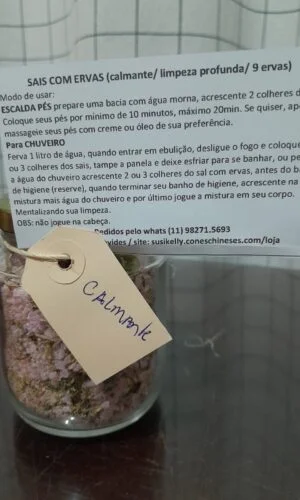 SAIS COM ERVAS (calmante/ limpeza profunda/ 9 ervas)
Modo de usar:
ESCALDA PÉS prepare uma bacia com água morna, acrescente 2 colheres d
Coloque seus pés por minimo de 10 minutos, máximo 20min. Se quiser, ap
massageie seus pés com creme ou óleo de sua preferência.
Para CHUVEIRO
Ferva 1 litro de água, quando entrar em ebulição, desligue o fogo e coloque
ou 3 colheres dos sais, tampe a panela e deixe esfriar para se banhar, ou pe
a água do chuveiro acrescente 2 ou 3 colheres do sal com ervas, antes do ba
de higiene (reserve), quando terminar seu banho de higiene, acrescente na
mistura mais água do chuveiro e por último jogue a mistura em seu corpo.
Mentalizando sua limpeza.
OBS: não jogue na cabeça.
Pedidos pelo whats (11) 98271.5693
vides / site: susikelly.coneschineses.com/loja
CALMANTE